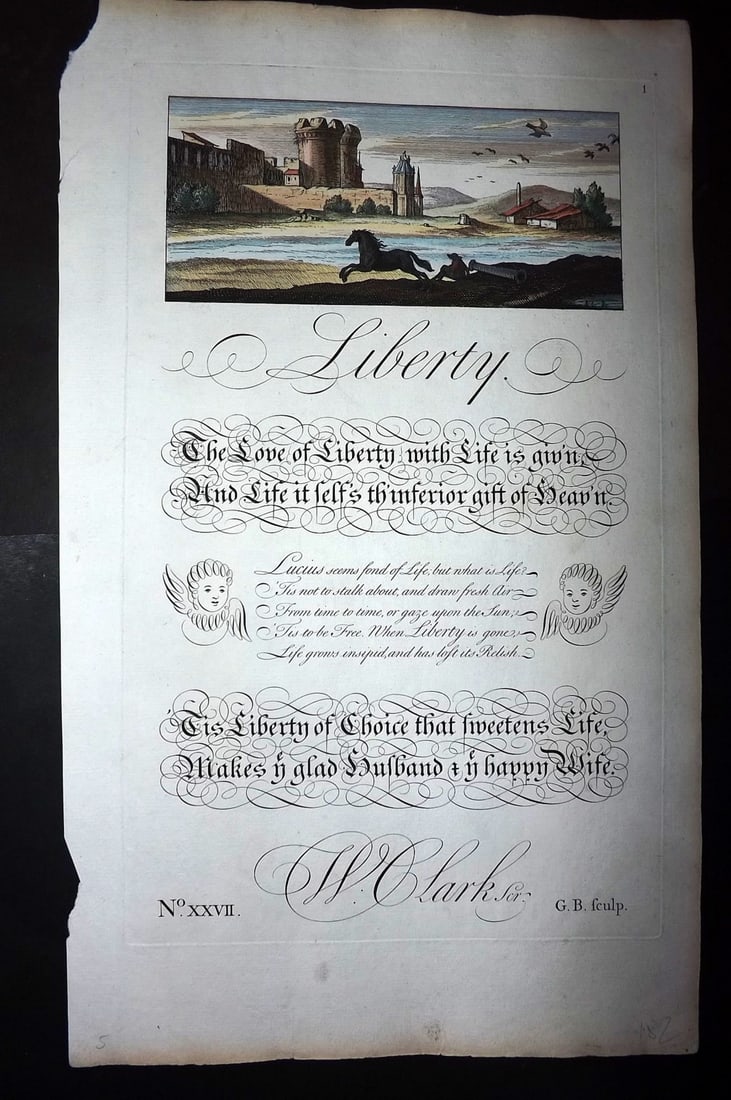 1
Liberty.
The Love of Liberty with Life is giv'n,
And Life it self's th'inferior gift of Heav'n.
Lucius seems fond of Life, but what is Life?
'Tis not to stalk about, and draw fresh Air
From time to time, or gaze upon the Sun;
'Tis to be Free. When Liberty is gone,
Life grows insipid, and has lost its Relish.
'Tis Liberty of Choice that sweetens Life,
Makes yͤ glad Husband & yͤ happy Wife.
W. Clark Scr.
No. XXVII.
G. B. sculp.
5